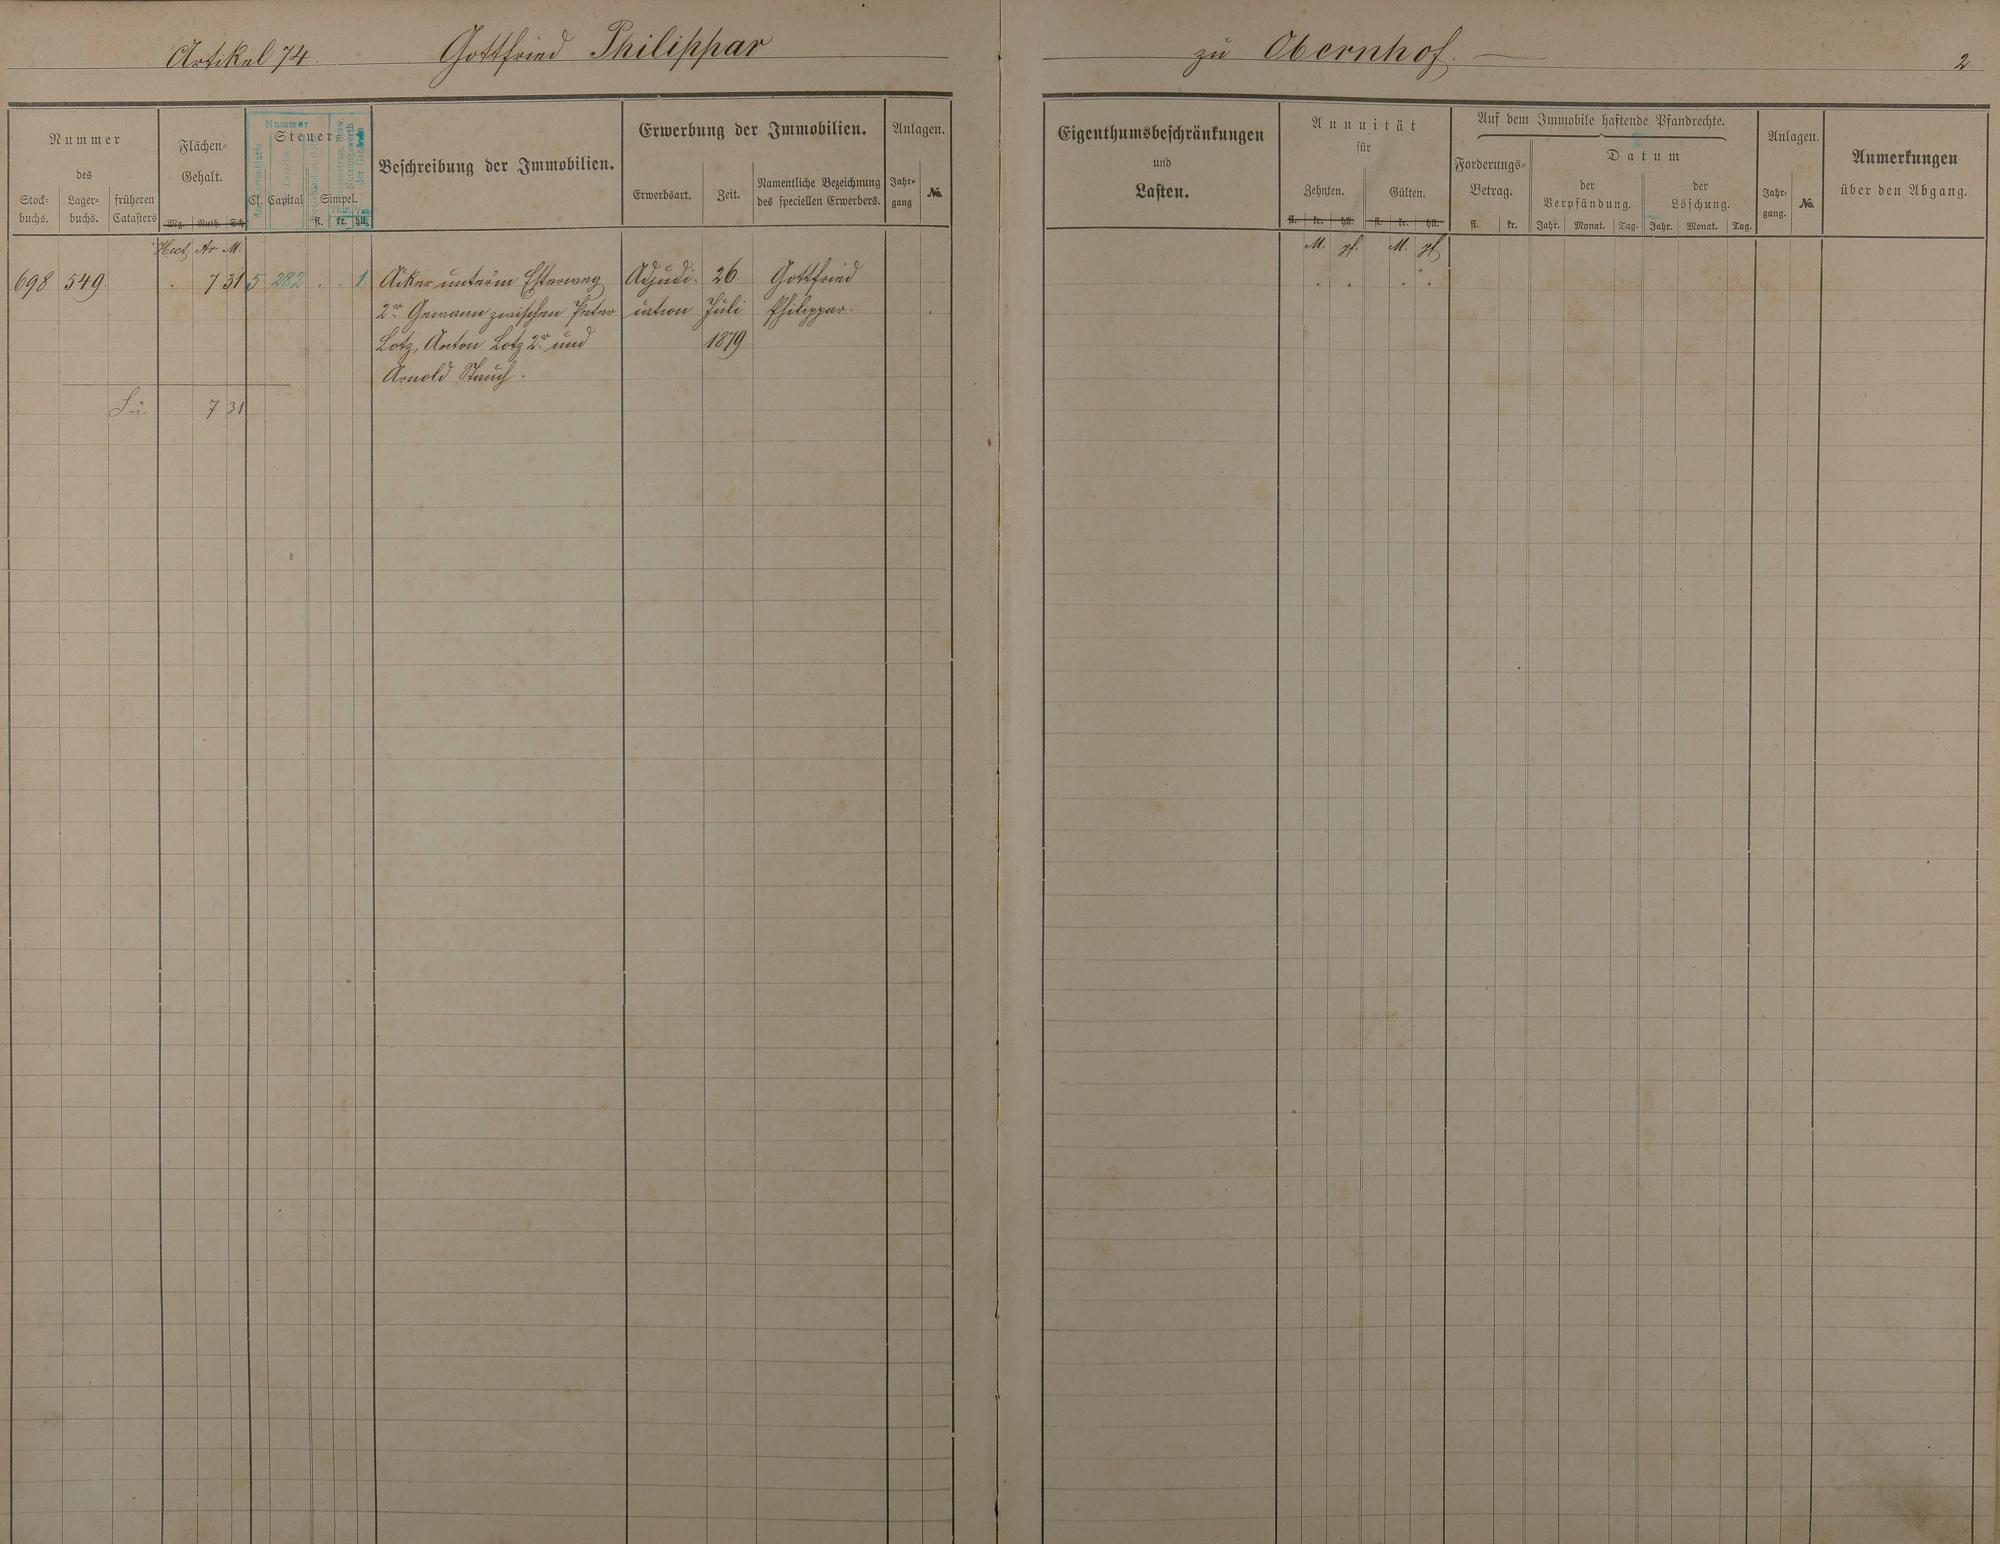 Artikel 74. Gottfried Philippar
zu Obernhof. — 2
Nummer
des
Stock-
buchs.
Lager-
buchs.
früheren
Catasters
Flächen-
Gehalt.
Mg. Ruth. Sch.
Nummer
Steuer
Cl. Capital Simpel.
fl. kr. hll.
Beschreibung der Immobilien.
Erwerbung der Immobilien.
Erwerbsart. Zeit.
Namentliche Bezeichnung
des speciellen Erwerbers.
Anlagen.
Jahr-
gang
No.
Hect. Ar M.
698 549. . 7 31 5 282 . . 1. Acker unterm Esterweg Adjudi- 26 Gottfried
2r Gewann zwischen Peter cation Juli Philippar.
Lotz, Anton Lotz 2r und 1879
Arnold Stauch.
Su. 7 31
Eigenthumsbeschränkungen
und
Lasten.
Annuität
für
Zehnten. Gülten.
fl. kr. hll. fl. kr. hll.
M. pf. M. pf.
Auf dem Immobile haftende Pfandrechte.
Forderungs-
Betrag.
fl. kr.
Datum
der
Verpfändung.
Jahr. Monat. Tag.
der
Löschung.
Jahr. Monat. Tag.
Anlagen.
Jahr-
gang.
No.
Anmerkungen
über den Abgang.